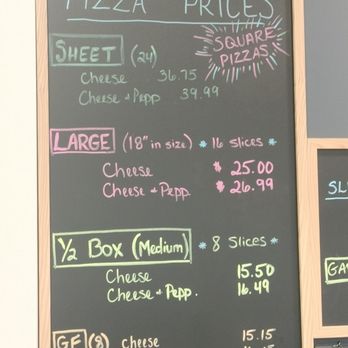 PIZZA PRICES
SQUARE
PIZZAS
SHEET (24)
Cheese 36.75
Cheese + Pepp 39.99
LARGE (18" in size) * 16 slices *
Cheese $ 25.00
Cheese + Pepp. $ 26.99
1/2 Box (Medium) * 8 Slices *
Cheese 15.50
Cheese + Pepp. 16.49
GF (8) Cheese 15.15
SL